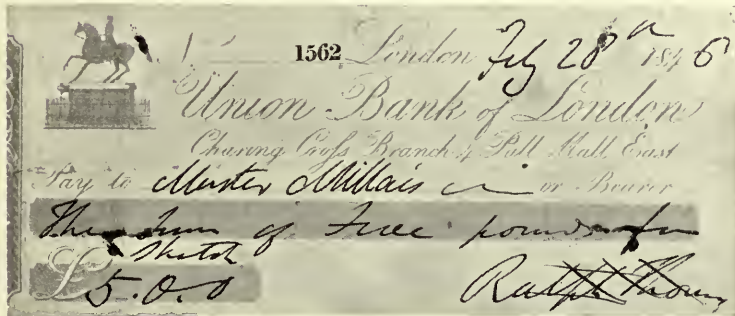 1562 London Feby 28th 1846
Union Bank of London
Charing Cross Branch 4 Pall Mall East
Pay to Master Millais or Bearer
The Sum of Five pounds for
Sketch
£ 5.0.0 Ralph Thomas